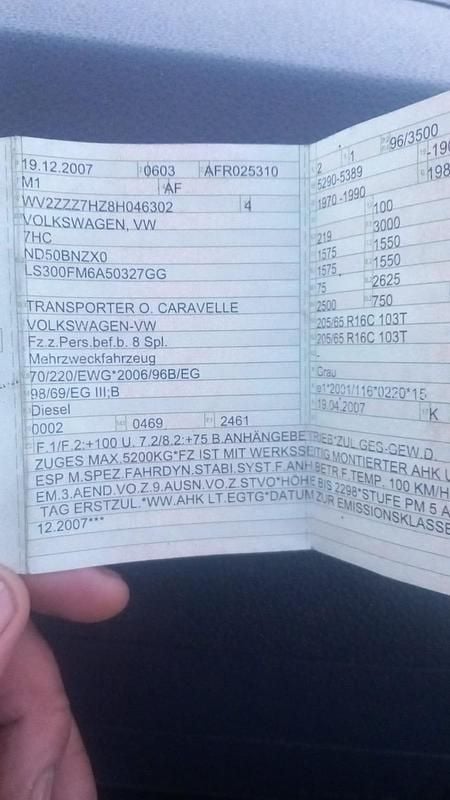 19.12.2007 0603 AFR025310
M1 AF
WV2ZZZ7HZ8H046302 4
VOLKSWAGEN, VW
7HC
ND50BNZX0
LS300FM6A50327GG
TRANSPORTER O. CARAVELLE
VOLKSWAGEN-VW
Fz.z.Pers.bef.b. 8 Spl.
Mehrzweckfahrzeug
70/220/EWG*2006/96B/EG
98/69/EG III;B
Diesel
0002 0469 2461
2 1 96/3500
5290-5389 -190
1970-1990 198
100
219 3000
1575 1550
1575 1550
75 2625
2500 750
205/65 R16C 103T
205/65 R16C 103T
-
-
Grau
e1*2001/116*0220*15
19.04.2007 K
F.1/F.2:+100 U. 7.2/8.2:+75 B.ANHÄNGEBETRIEB*ZUL.GES-GEW.D.
ZUGES MAX.5200KG*FZ IST MIT WERKSSEITIG MONTIERTER AHK U
ESP M.SPEZ.FAHRDYN.STABI.SYST.F.ANH.BETR.F.TEMP. 100 KM/H
EM.3.AEND.VO.Z.9.AUSN.VO.Z.STVO*HÖHE BIS 2298*STUFE PM 5 A
TAG ERSTZUL.*WW.AHK LT.EGTG*DATUM ZUR EMISSIONSKLASSE
12.2007***